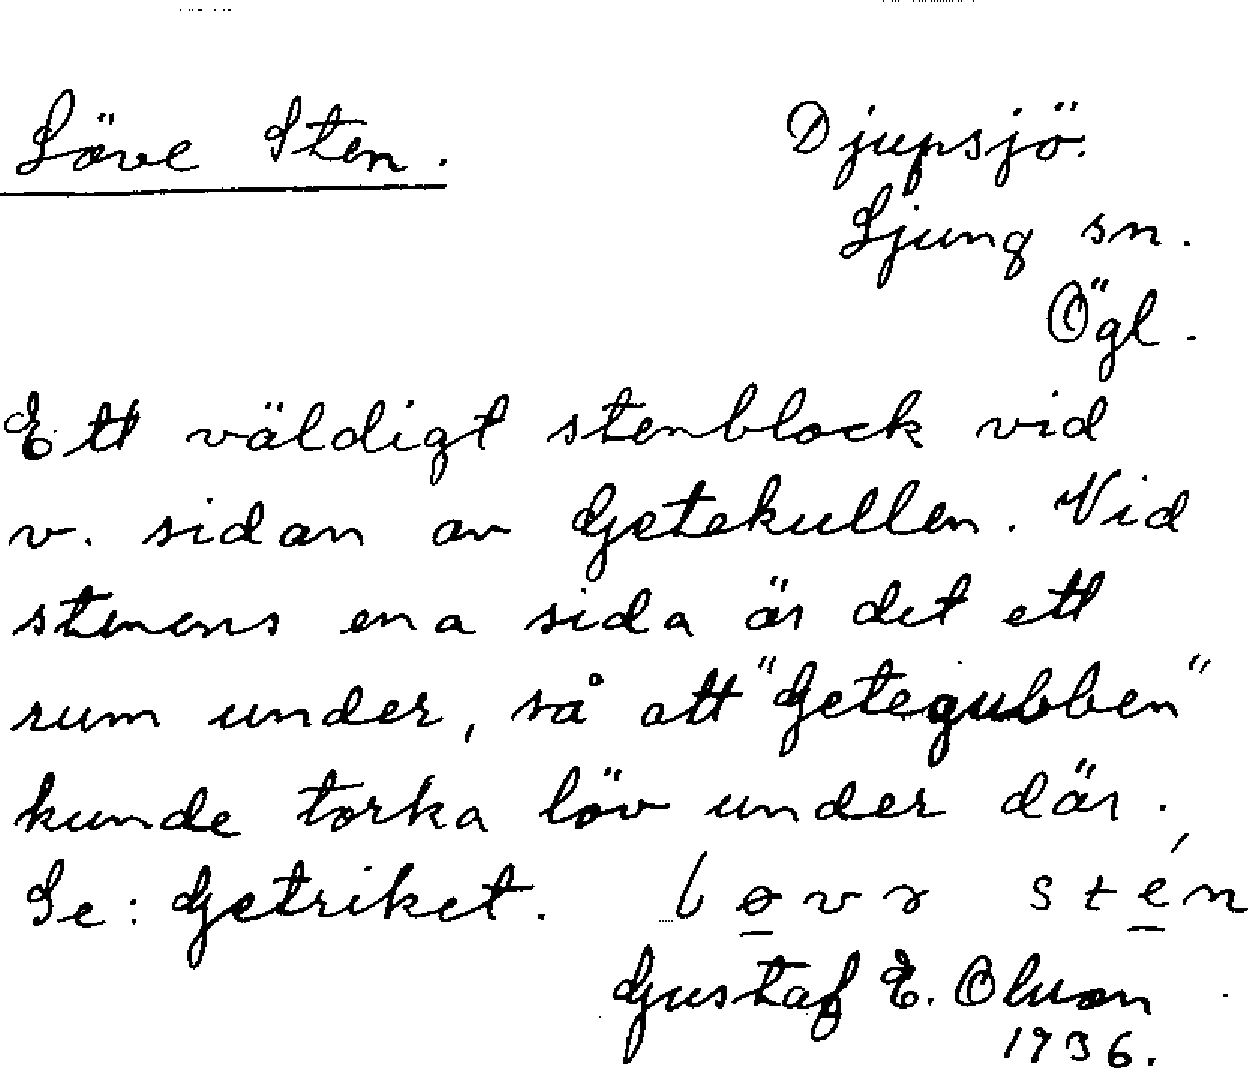 Löve Sten.
Djupsjö.
Ljung sn.
Ögl.
Ett väldigt stenblock vid
v. sidan av Getekullen. Vid
stenens ena sida är det ett
rum under, så att "Getegubben"
kunde torka löv under där.
Se: Getriket.
Gustaf E. Olsson
1936.